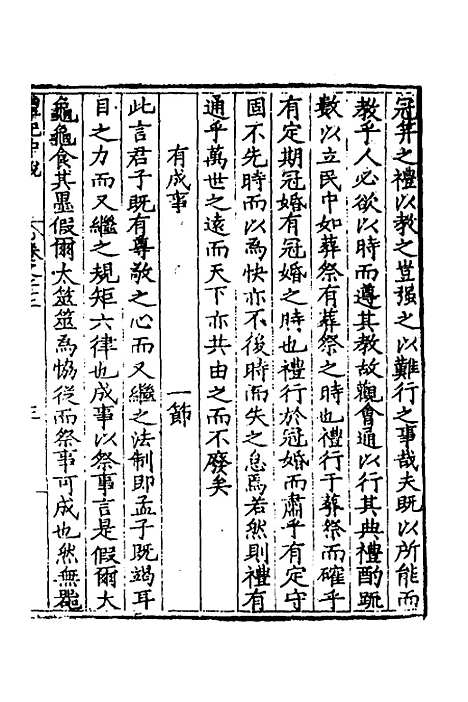 冠笄之禮以教之豈强之以難行之事哉夫既以所能而
教乎人必欲以時而遵其教故觀會通以行其典禮酌䟽
數以立民中如葬祭有葬祭之時也禮行于葬祭而確乎
有定期冠婚有冠婚之時也禮行於冠婚而肅乎有定守
固不先時而以為快亦不後時而失之怠焉若然則禮有
通乎萬世之遠而天下亦共由之而不廢矣
有成事 一節
此言君子既有尊敬之心而又繼之法制即孟子既竭耳
目之力而又繼之規矩六律也成事以祭事言是假爾大
龜龜食其墨假爾大筮筮為恊從而祭事可成也然無器
禮記中說 卷之三 三